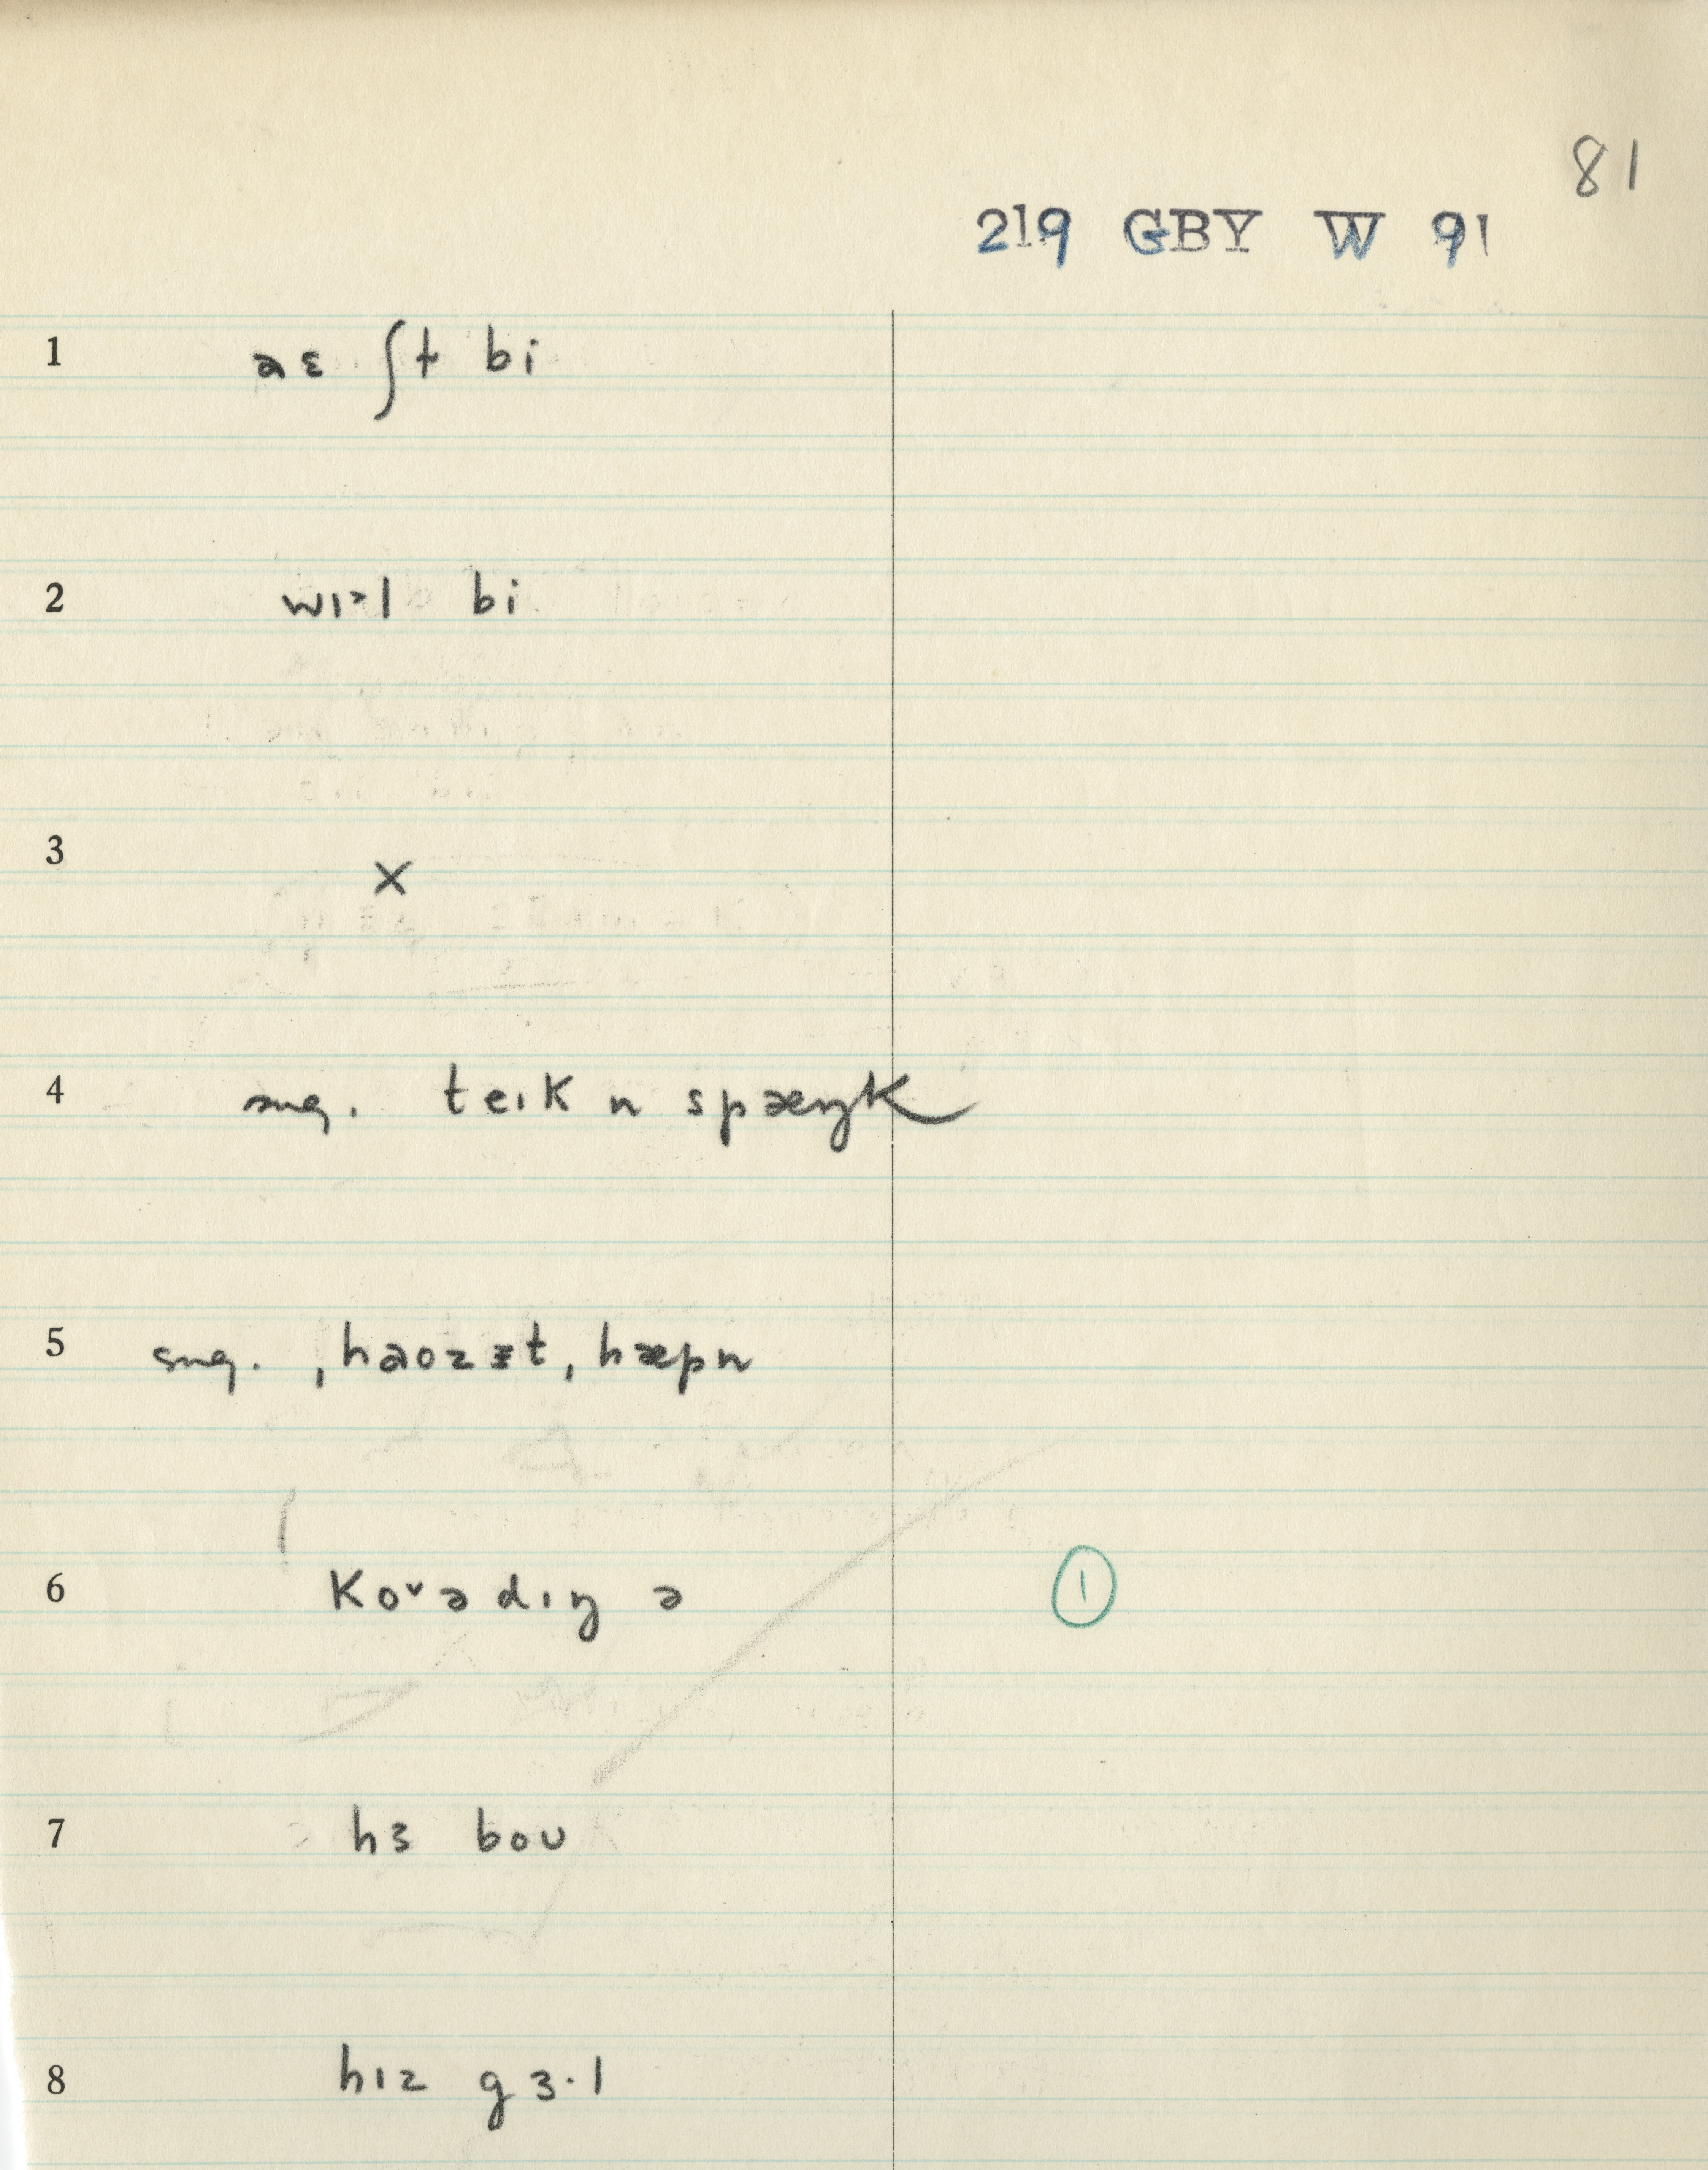 81
219 GBY W 91
1 aɛ ʃt bi
2 wɪᵊl bi
3 ×
4 sug. teɪk n spæŋk
5 sug. , haozət, hæpn
6 Koᵛədɪŋ ə ①
7 hɜ boʊ
8 hɪz gɜ·l